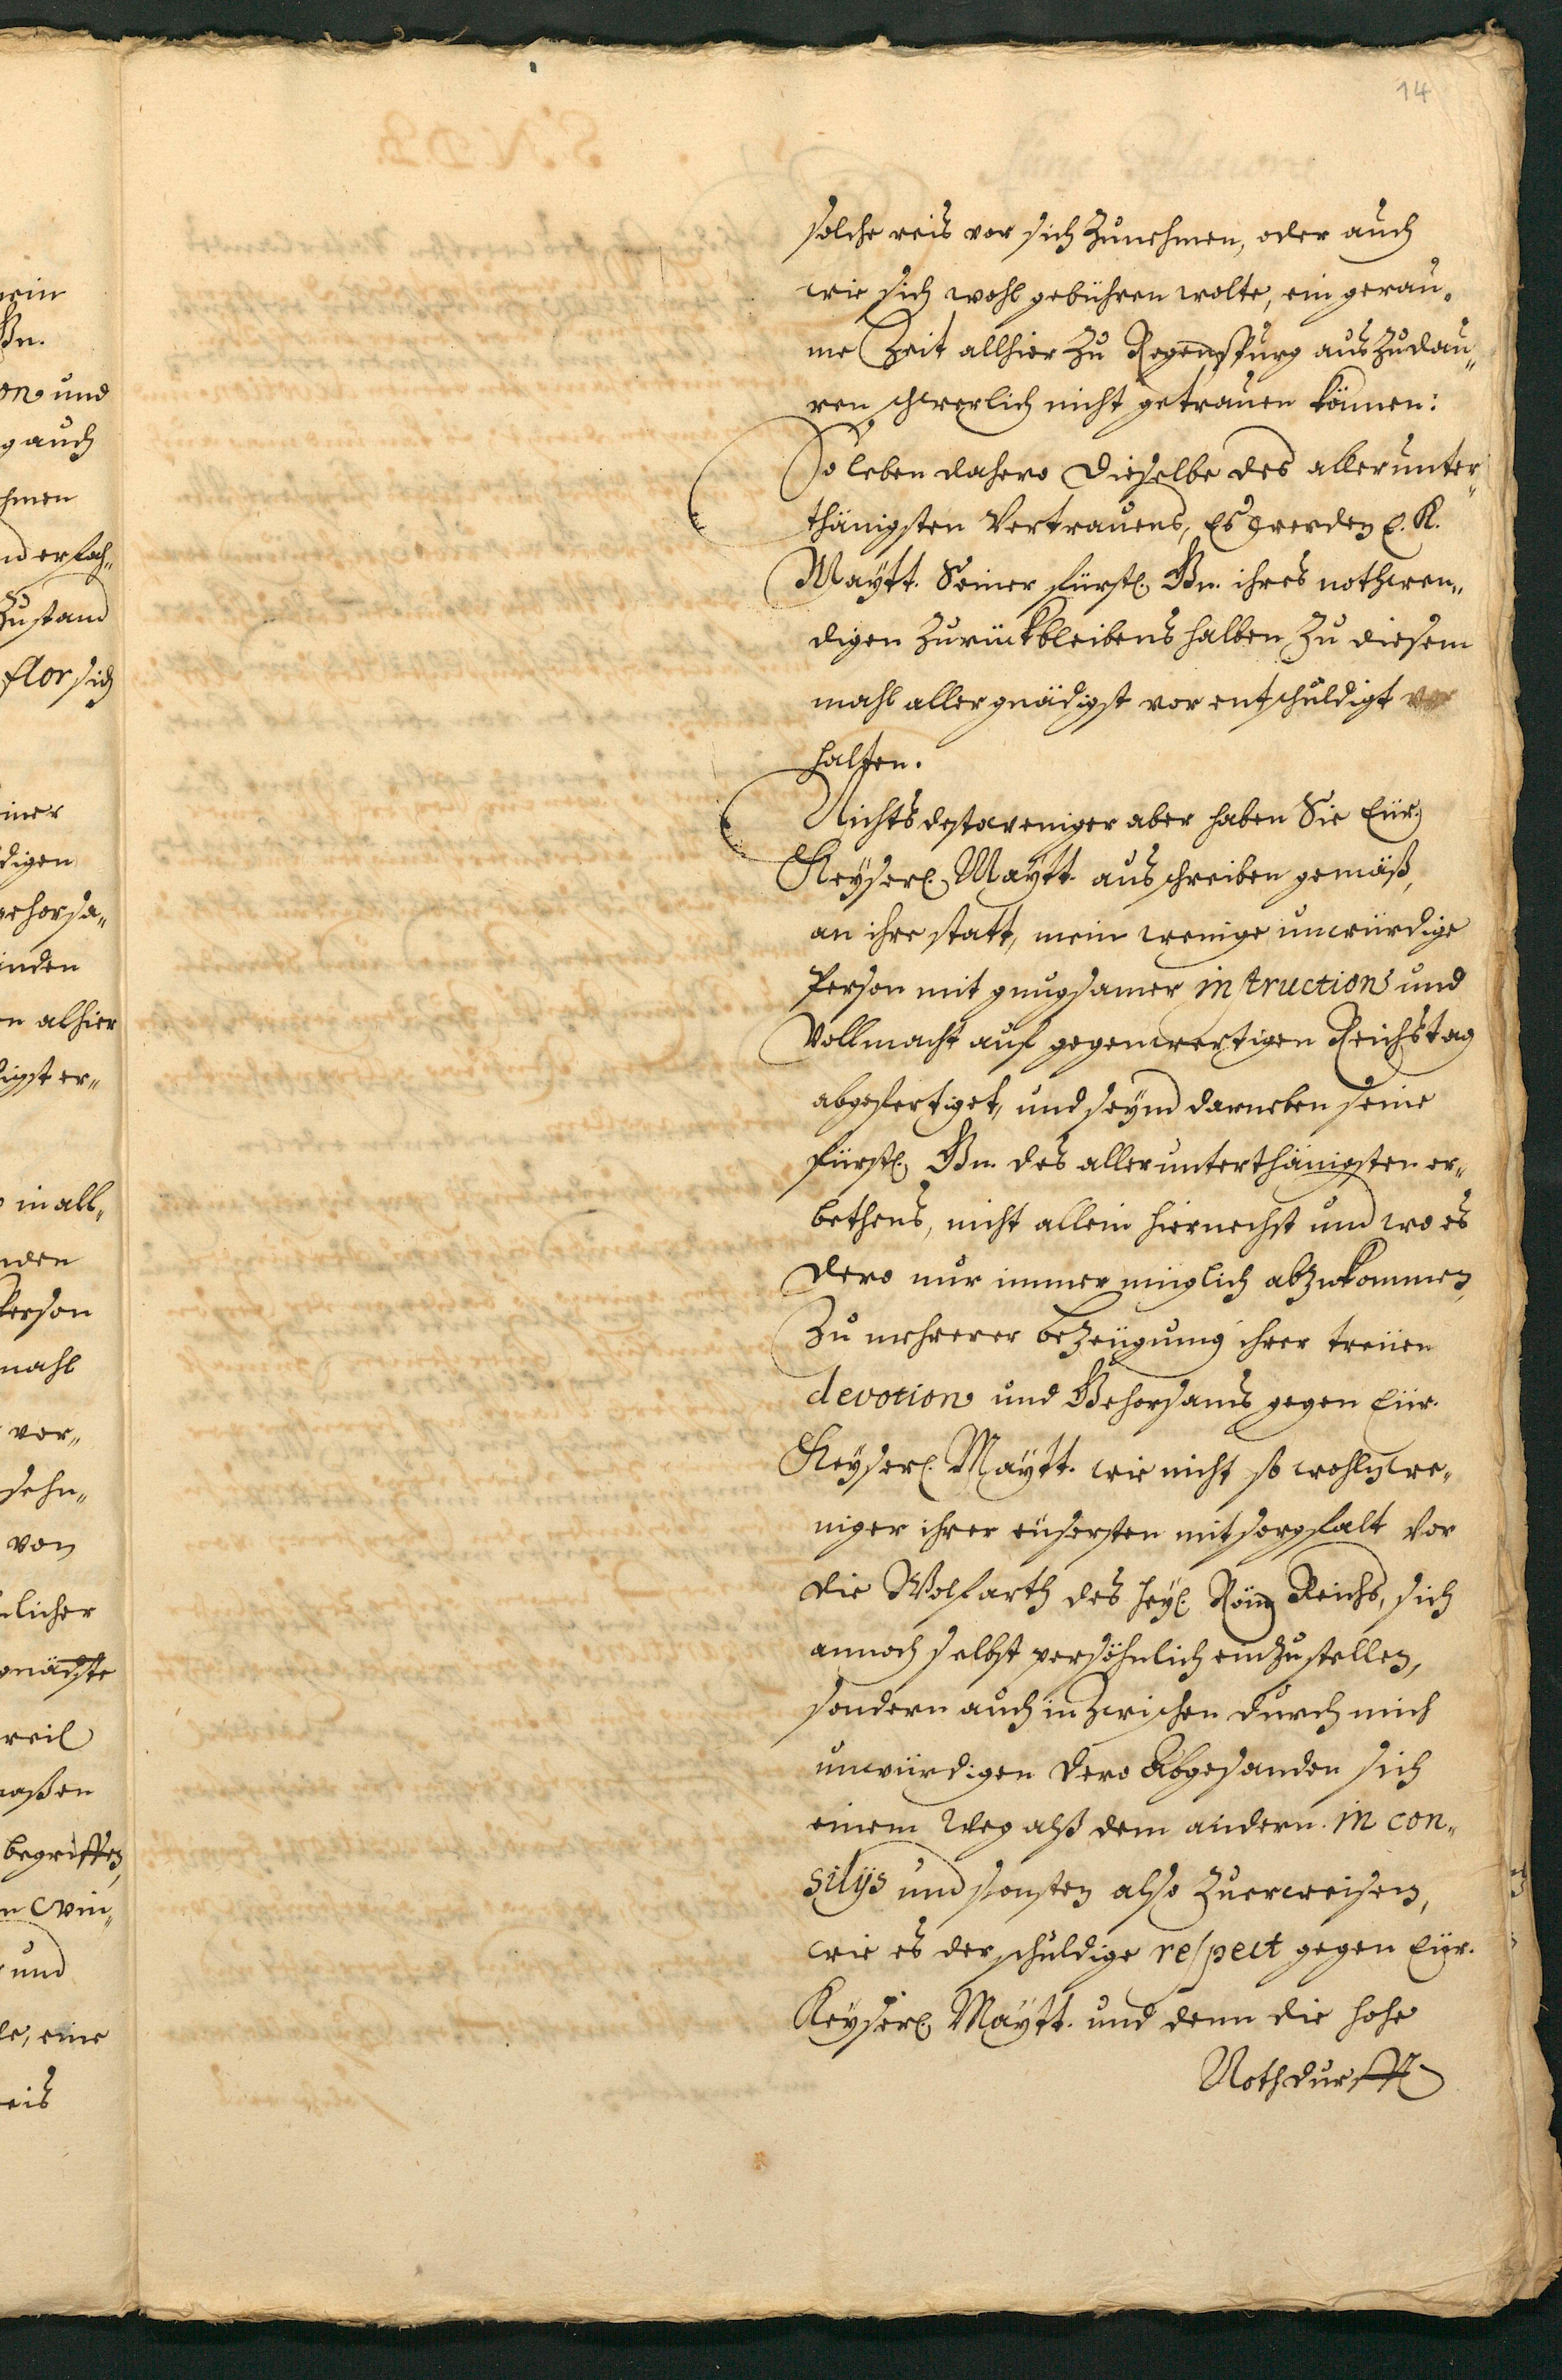 14
solche reis vor sich Zunehmen, oder auch
wie sich wohl gebühren wolte, ein gerau„
me Zeit allhier Zu Regenspurg ausZudau„
ren schwerlich nicht getrauen können:
So leben dahero dieselbe des allerunter„
thänigsten Vertrauens, Es werden E. K.
Maytt. Seiner fürstl. Gn. ihres nothwen„
digen Zurückbleibens halben Zu diesem
mahl allergnädigst vor entschuldigt
halten.
Nichts destoweniger aber haben Sie Eür.
Keyserl. Maytt. ausschreiben gemäß,
an ihre statt, mein wenige unwürdige
Person mit gnugsamer instruction und
Vollmacht auf gegenwertigen Reichstag
abgefertiget, und seynd darneben seine
fürstl. Gn. des allerunterthänigsten er„
bethens, nicht allein hiernechst und wo es
dero nur immer müglich abzukommen,
Zu mehrerer beZeügung ihrer treüen
devotion und Gehorsams gegen Eür.
Keyserl. Maytt. wie nicht so wohl we„
niger ihrer eüsersten mitsorgfalt vor
die Wolfarth des Heyl. Röm Reichs, sich
annoch selbst persöhnlich einzustellen,
sondern auch inZwischen durch mich
unwürdigen dero Abgesanden sich
einem Weg alß dem andern in con„
silijs und sonsten also Zuerweisen,
wie es der schuldige respect gegen Eür.
Keyserl. Maytt. und denn die hohe
Nothdurfft
mein
Gn.
on und
g auch
hmen
nd erfah„
Zustand
flor sich
iner
digen
gehorsa„
inden
en alhier
digst er„
in all„
nden
Person
mahl
vor„
sehn„
von
licher
gnädste
weil
maßen
begriffen,
n Win„
und
le, eine
eis